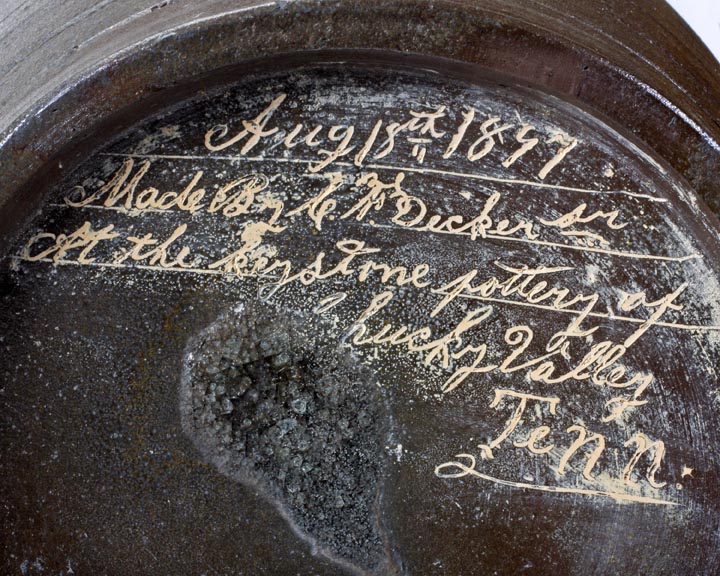 Aug 18th 1897
Made By C F Decker sr
At the keystone pottery of
Chucky Valley
Tenn.